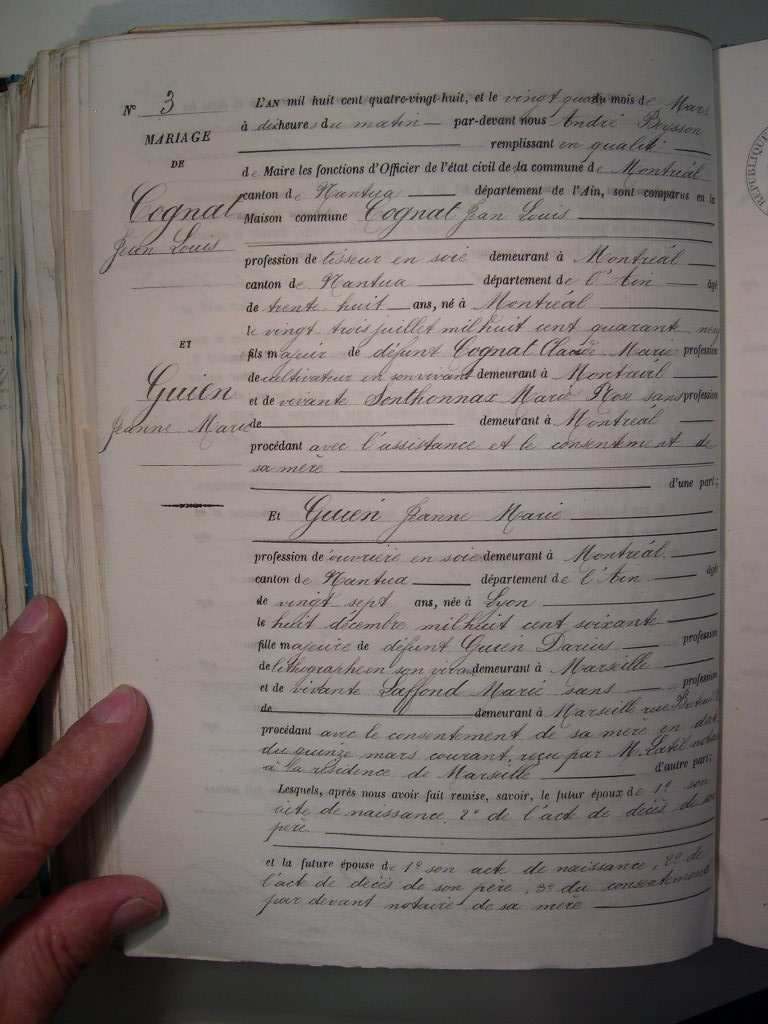 N° 3
MARIAGE
DE
Cognat
Jean Louis
ET
Guien
Jeanne Marie
L'AN mil huit cent quatre-vingt-huit, et le vingt du mois de Mars
à dix heures du matin par-devant nous André Beysson
remplissant en qualité
de Maire les fonctions d'Officier de l'état civil de la commune de Montréal
canton de Nantua département de l'Ain, sont comparus en la
Maison commune Cognat Jean Louis
profession de tisseur en soie demeurant à Montréal
canton de Nantua département de l'Ain âgé
de trente huit ans, né à Montréal
le vingt trois juillet mil huit cent quarante neuf
fils majeur de défunt Cognat Claude Marie profession
de cultivateur en son vivant demeurant à Montréal
et de vivante Sonthonnax Marie Rose sans profession
de demeurant à Montréal
procédant avec l'assistance et le consentement de
sa mère
d'une part;
Et Guien Jeanne Marie
profession de ouvrière en soie demeurant à Montréal
canton de Nantua département de l'Ain âgée
de vingt sept ans, née à Lyon
le huit décembre mil huit cent soixante
fille majeure de défunt Guien Darius profession
de lithographe en son vivant demeurant à Marseille
et de vivante Laffond Marie sans profession
de demeurant à Marseille rue
procédant avec le consentement de sa mère en date
du quinze mars courant, reçu par M. notaire
à la résidence de Marseille d'autre part;
Lesquels, après nous avoir fait remise, savoir, le futur époux de 1° son
acte de naissance, 2° de l'act de décès de son
père
et la future épouse de 1° son acte de naissance, 2° de
l'act de décès de son père, 3° du consentement
par devant notaire de sa mère
RÉPUBLIQUE